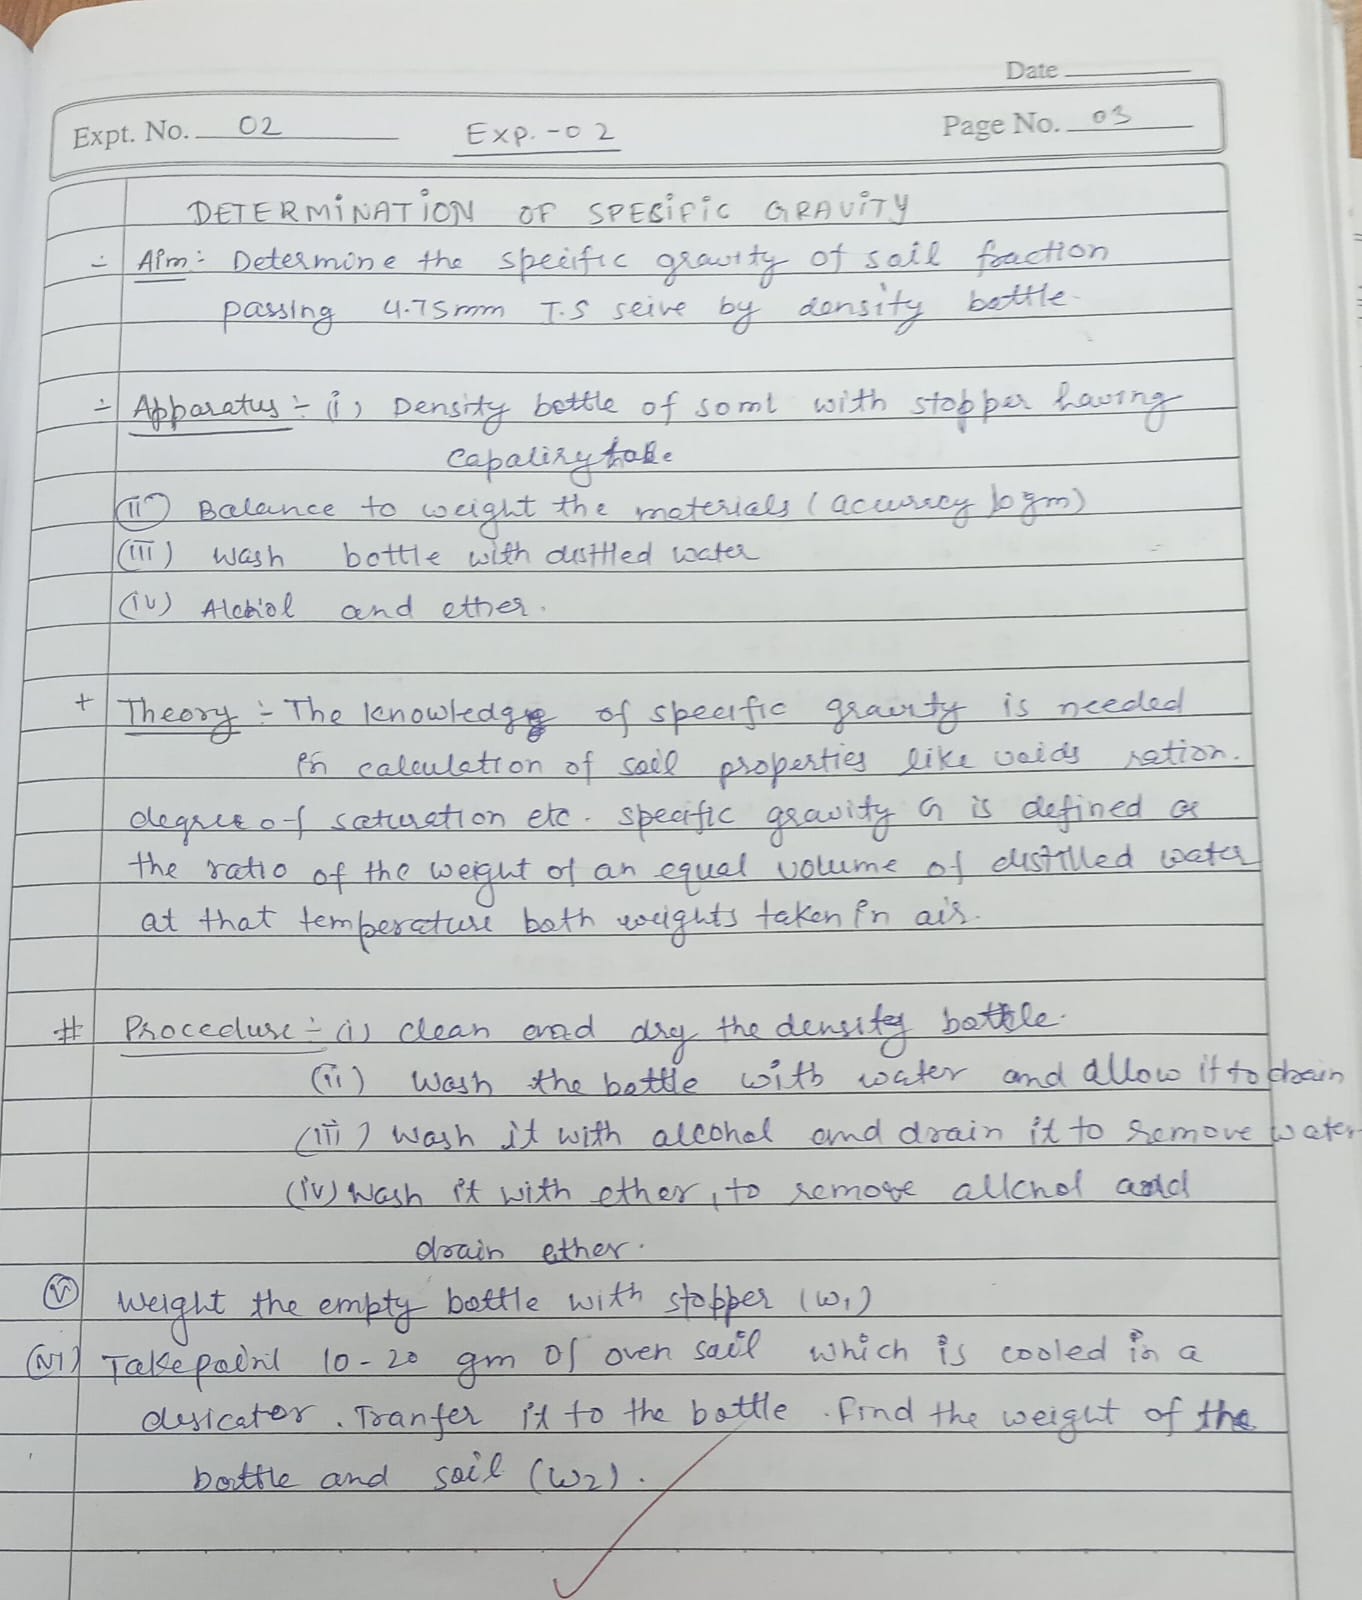 Date
Expt. No. 02 Exp. - 02 Page No. 03
DETERMINATION OF SPECIFIC GRAVITY
Aim:- Determine the specific gravity of soil fraction
passing 4.75mm I.S seive by density bottle.
Apparatus:- (i) Density bottle of 50ml with stopper having
(ii) Balance to weight the materials (accuracy gm)
(iii) Wash bottle with distlled water
(iv) Alchol and ether.
Theory:- The knowledge of specific gravity is needed
in calculation of soil properties like voids ration.
degree of saturation etc. specific gravity G is defined as
the ratio of the weight of an equal volume of distilled water
at that temperature both weights taken in air.
# Procedure:- (i) clean and dry the density bottle.
(ii) Wash the bottle with water and allow it to drain
(iii) Wash it with alcohol and drain it to remove water
(iv) Wash it with ether, to remove allchol and
drain ether.
(v) Weight the empty bottle with stopper (W1)
(vi) Take 10-20 gm of oven soil which is cooled in a
desicator. Tranfer it to the bottle. Find the weight of the
bottle and soil (W2).